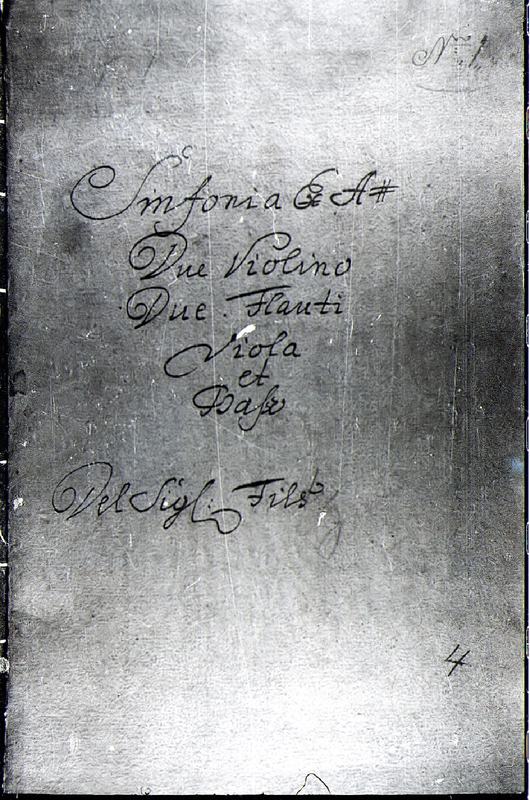 Nro. 1.
Sinfonia Ex A#
Due Violino
Due. Flauti
Viola
et
Basso
Del Sigl: Fils
4